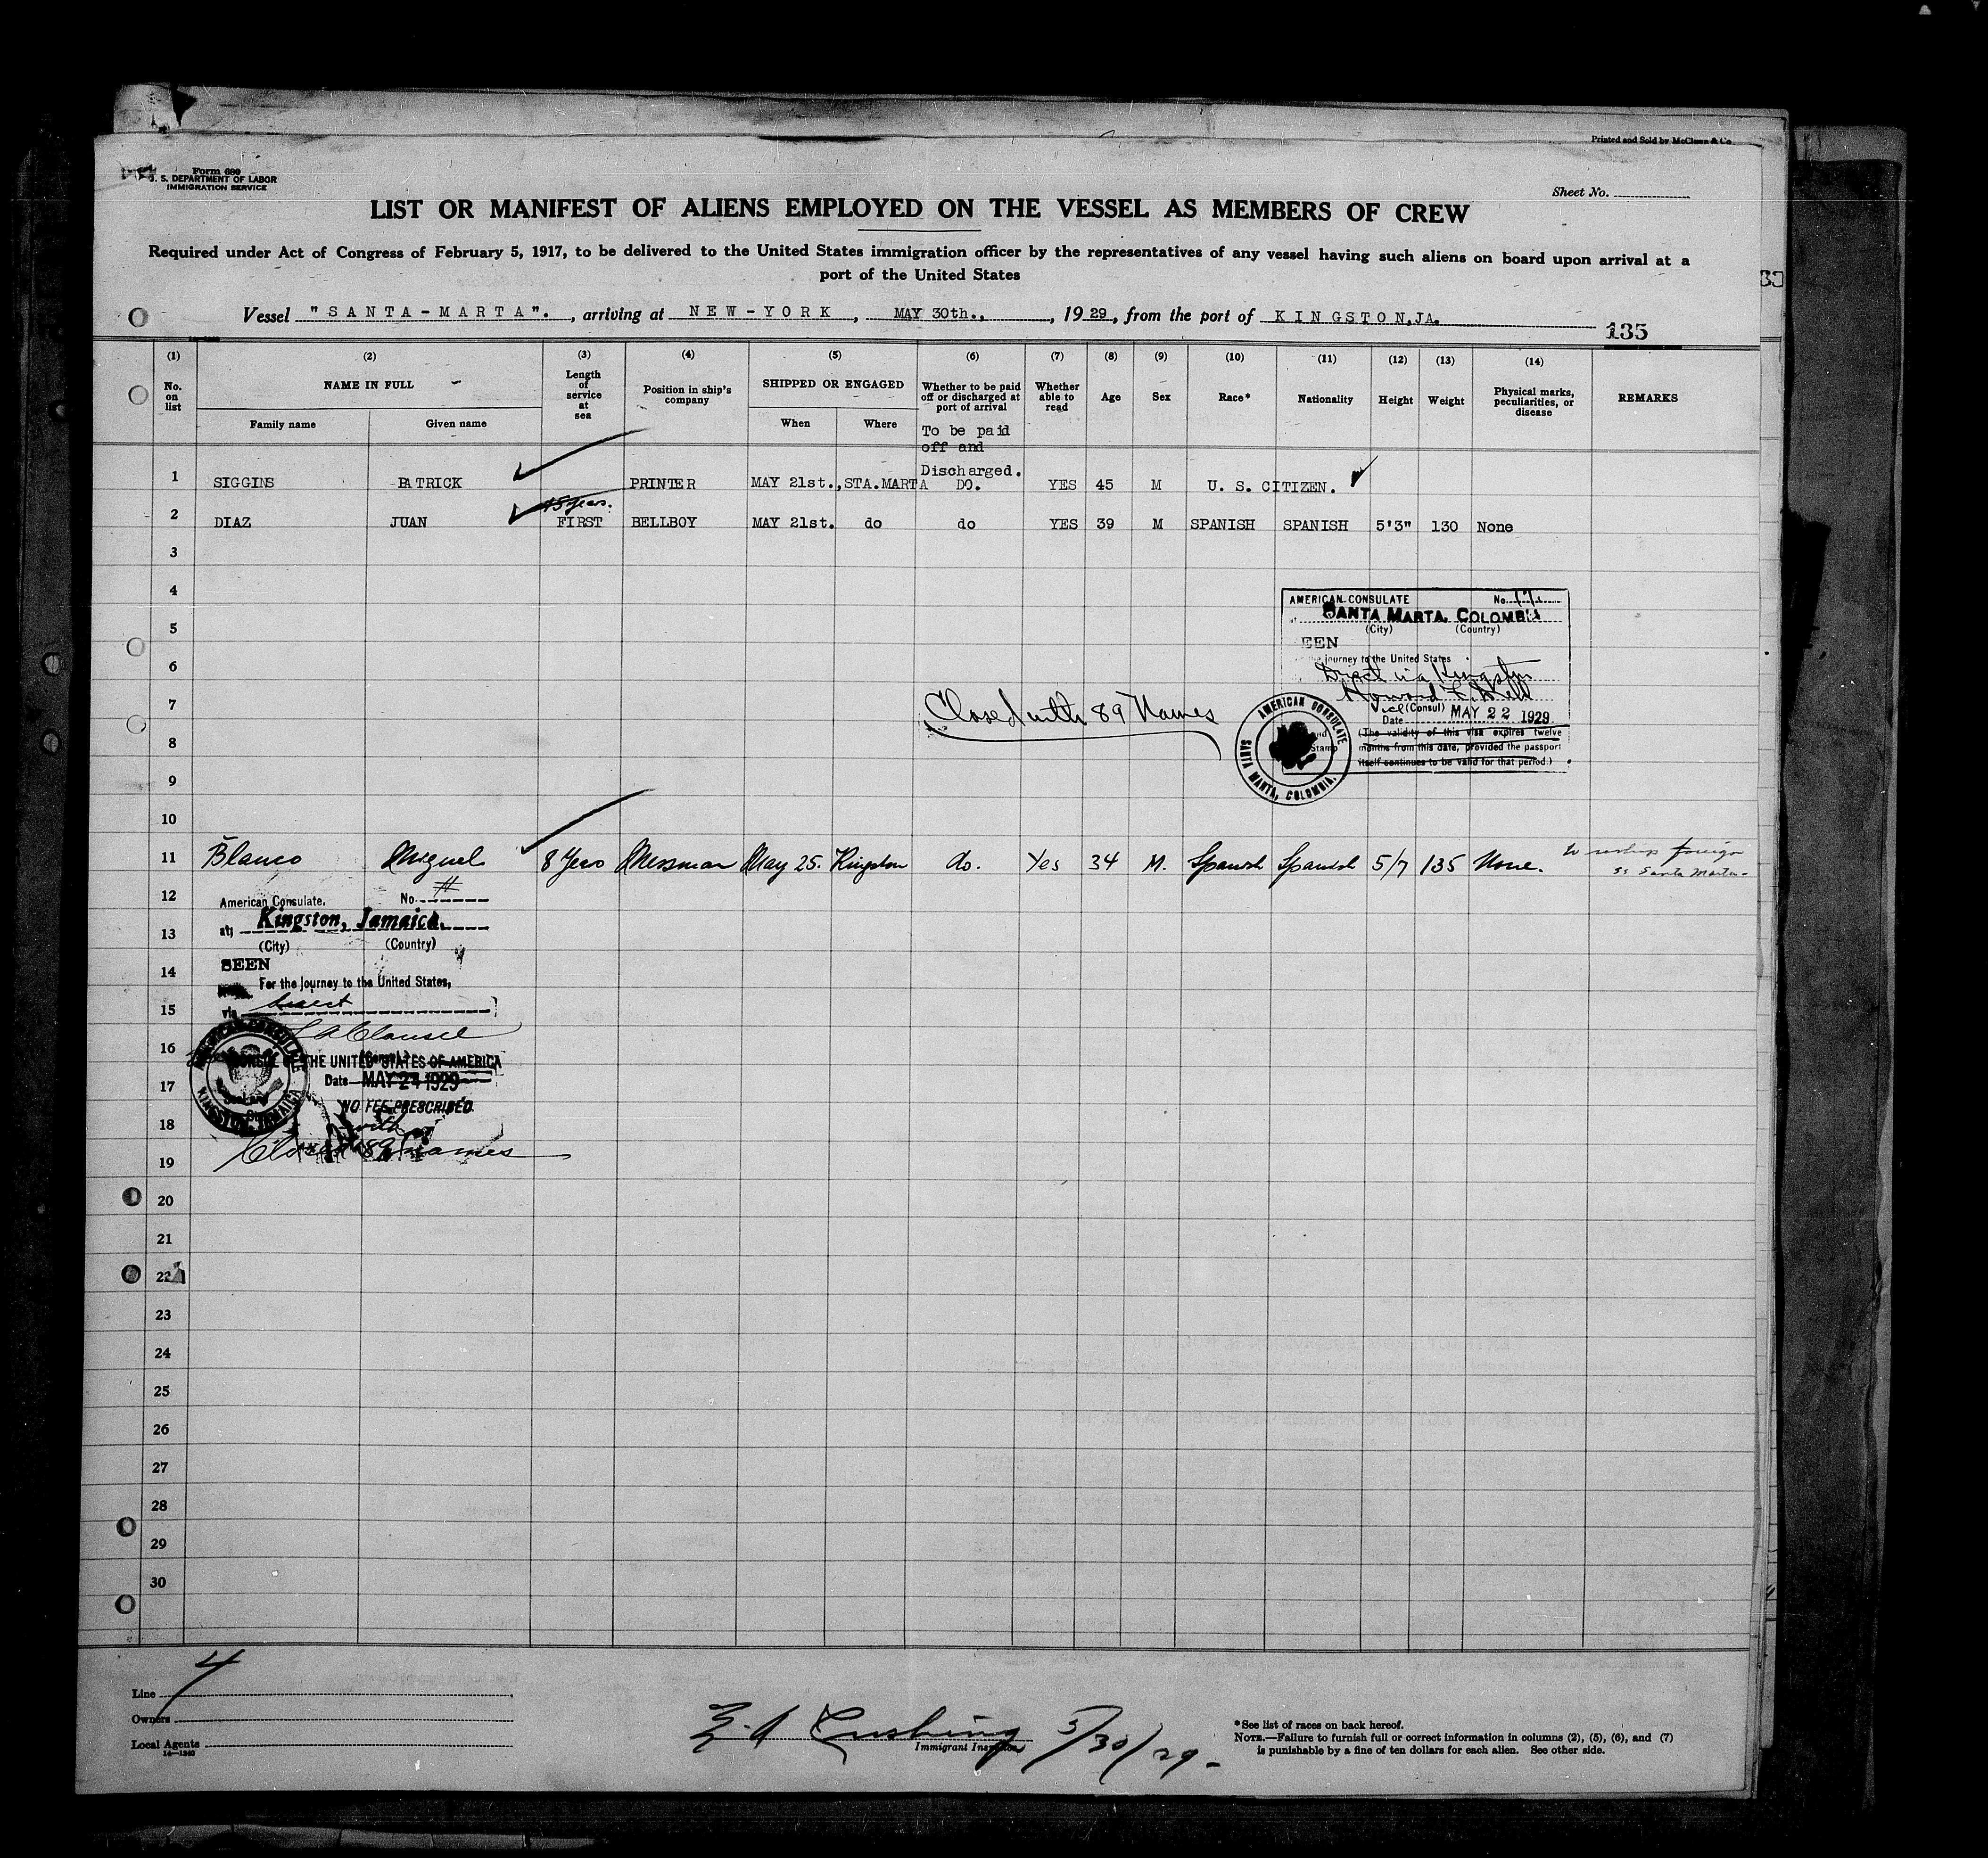 Printed and Sold by McClunn & Co.
Form 680
U. S. DEPARTMENT OF LABOR
IMMIGRATION SERVICE
Sheet No.
LIST OR MANIFEST OF ALIENS EMPLOYED ON THE VESSEL AS MEMBERS OF CREW
Required under Act of Congress of February 5, 1917, to be delivered to the United States immigration officer by the representatives of any vessel having such aliens on board upon arrival at a
port of the United States
Vessel "SANTA-MARTA"., arriving at NEW-YORK, MAY 30th., 1929, from the port of KINGSTON, JA.
135
(1) (2) (3) (4) (5) (6) (7) (8) (9) (10) (11) (12) (13) (14)
No. on list NAME IN FULL Length of service at sea Position in ship's company SHIPPED OR ENGAGED Whether to be paid off or discharged at port of arrival Whether able to read Age Sex Race* Nationality Height Weight Physical marks, peculiarities, or disease REMARKS
Family name Given name When Where
To be paid
off and
Discharged.
1 SIGGINS PATRICK PRINTER MAY 21st., STA.MARTA DO. YES 45 M U. S. CITIZEN.
15 years.
2 DIAZ JUAN FIRST BELLBOY MAY 21st. do do YES 39 M SPANISH SPANISH 5'3" 130 None
3
4
AMERICAN CONSULATE No.
SANTA MARTA, COLOMBIA
5
(City) (Country)
EEN
6
journey to the United States
Direct via Kingston
7
Closed with 89 Names
Vice (Consul)
Date MAY 22 1929
AMERICAN CONSULATE
SANTA MARTA, COLOMBIA.
8
(The validity of this visa expires twelve
months from this date, provided the passport
itself continues to be valid for that period.)
9
10
11 Blanco Miguel 8 Years Messman May 25. Kingston do. Yes 34 M. Spanish Spanish 5/7 135 None. to reship foreign
ss Santa Marta-
12
American Consulate, No.
13
at, Kingston, Jamaica.
(City) (Country)
14
SEEN
For the journey to the United States,
15
via direct
16
CONSUL OF THE UNITED STATES OF AMERICA
(Consul)
17
Date MAY 24 1929
AMERICAN CONSULATE
KINGSTON, JAMAICA
NO FEE PRESCRIBED
18
with
19
Closed 89 names
20
21
22
23
24
25
26
27
28
29
30
4
Line
Owners
Local Agents
14—1240
E. A. Cushing 5/30/29-
Immigrant Inspector
*See list of races on back hereof.
NOTE.—Failure to furnish full or correct information in columns (2), (5), (6), and (7)
is punishable by a fine of ten dollars for each alien. See other side.